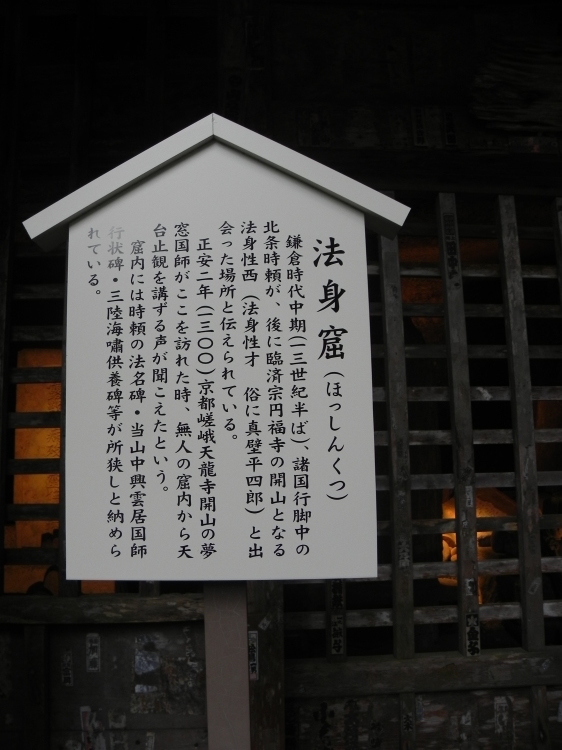 法身窟(ほっしんくつ)
鎌倉時代中期(一三世紀半ば)、諸国行脚中の
北条時頼が、後に臨済宗円福寺の開山となる
法身性西(法身性才　俗に真壁平四郎)と出
会った場所と伝えられている。
正安二年(一三〇〇)京都嵯峨天龍寺開山の夢
窓国師がここを訪れた時、無人の窟内から天
台止観を講ずる声が聞こえたという。
窟内には時頼の法名碑・当山中興雲居国師
行状碑・三陸海嘯供養碑等が所狭しと納めら
れている。